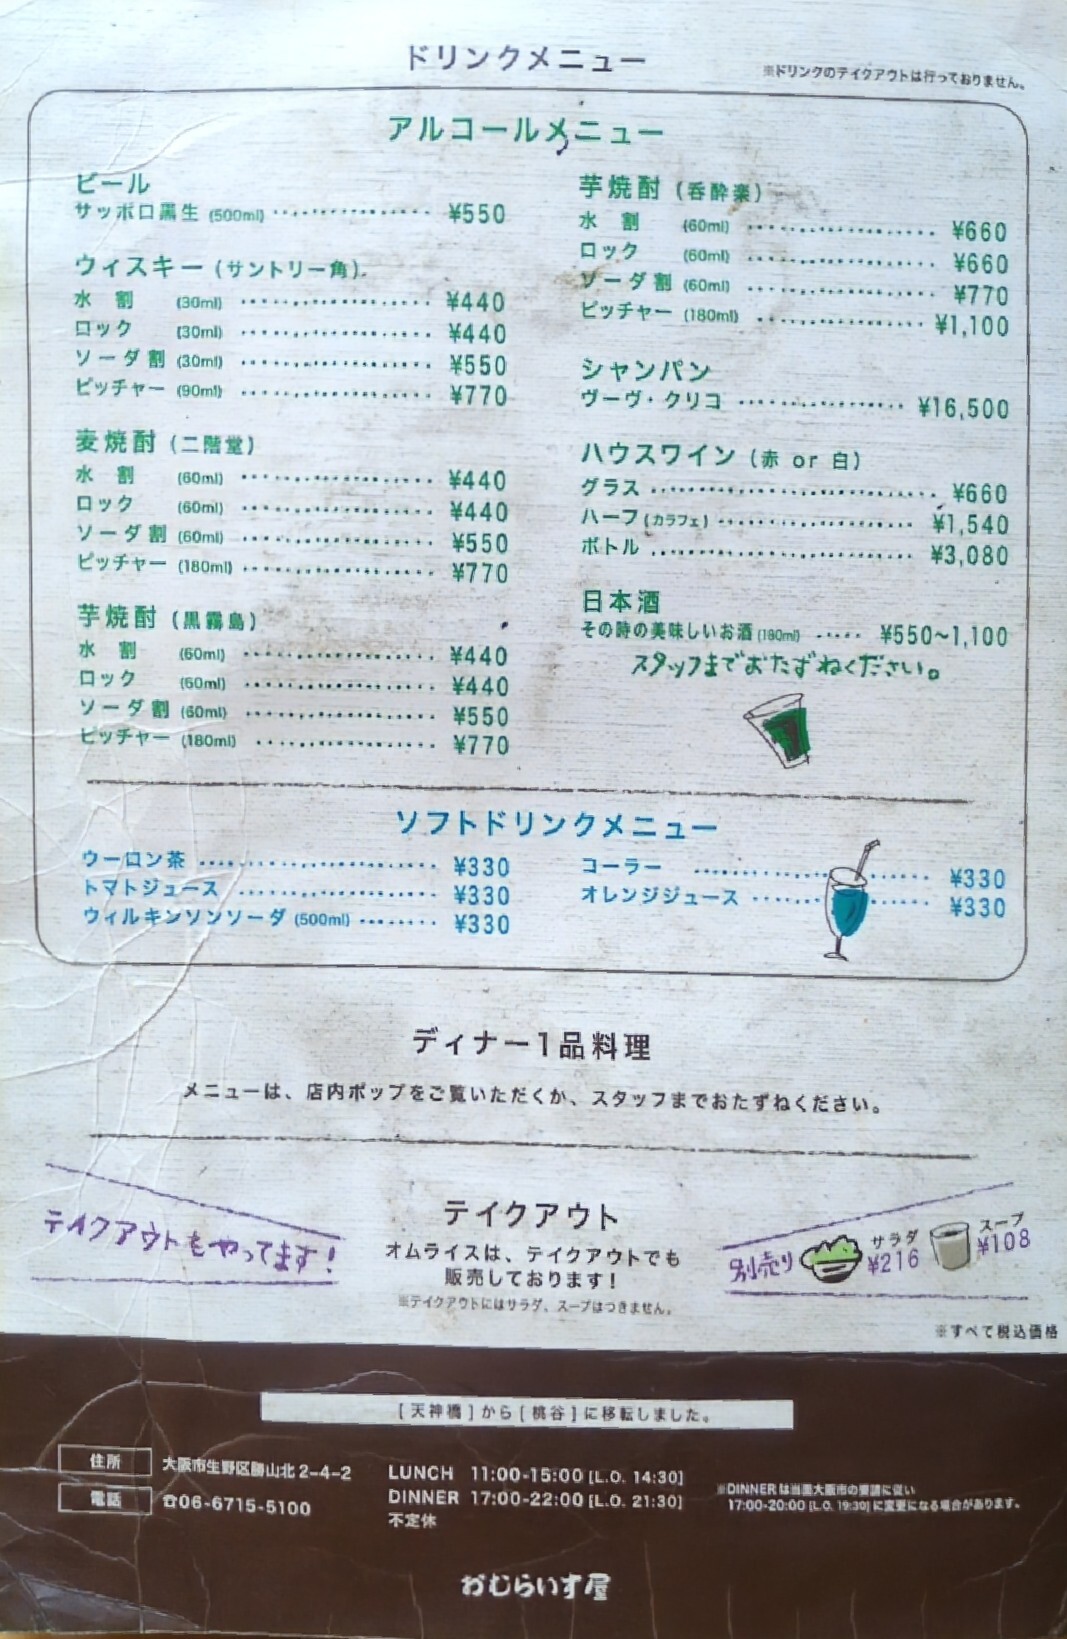 ドリンクメニュー
※ドリンクのテイクアウトは行っておりません。
アルコールメニュー
ビール
サッポロ黒生 (500ml) ¥550
ウィスキー (サントリー角)
水 割 (30ml) ¥440
ロック (30ml) ¥440
ソーダ割 (30ml) ¥550
ピッチャー (90ml) ¥770
麦焼酎 (二階堂)
水 割 (60ml) ¥440
ロック (60ml) ¥440
ソーダ割 (60ml) ¥550
ピッチャー (180ml) ¥770
芋焼酎 (黒霧島)
水 割 (60ml) ¥440
ロック (60ml) ¥440
ソーダ割 (60ml) ¥550
ピッチャー (180ml) ¥770
芋焼酎 (呑酔楽)
水 割 (60ml) ¥660
ロック (60ml) ¥660
ソーダ割 (60ml) ¥770
ピッチャー (180ml) ¥1,100
シャンパン
ヴーヴ・クリコ ¥16,500
ハウスワイン (赤 or 白)
グラス ¥660
ハーフ (カラフェ) ¥1,540
ボトル ¥3,080
日本酒
その時の美味しいお酒 (180ml) ¥550~1,100
スタッフまでおたずねください。
ソフトドリンクメニュー
ウーロン茶 ¥330
トマトジュース ¥330
ウィルキンソンソーダ (500ml) ¥330
コーラー ¥330
オレンジジュース ¥330
ディナー1品料理
メニューは、店内ポップをご覧いただくか、スタッフまでおたずねください。
テイクアウトもやってます!
テイクアウト
オムライスは、テイクアウトでも
販売しております!
※テイクアウトにはサラダ、スープはつきません。
別売り
サラダ
¥216
スープ
¥108
※すべて税込価格
[天神橋]から[桃谷]に移転しました。
住所 大阪市生野区勝山北2-4-2
電話 ☎06-6715-5100
LUNCH 11:00-15:00 [L.O. 14:30]
DINNER 17:00-22:00 [L.O. 21:30]
不定休
※DINNERは当面大阪市の要請に従い
17:00-20:00 [L.O. 19:30] に変更になる場合があります。
おむらいす屋